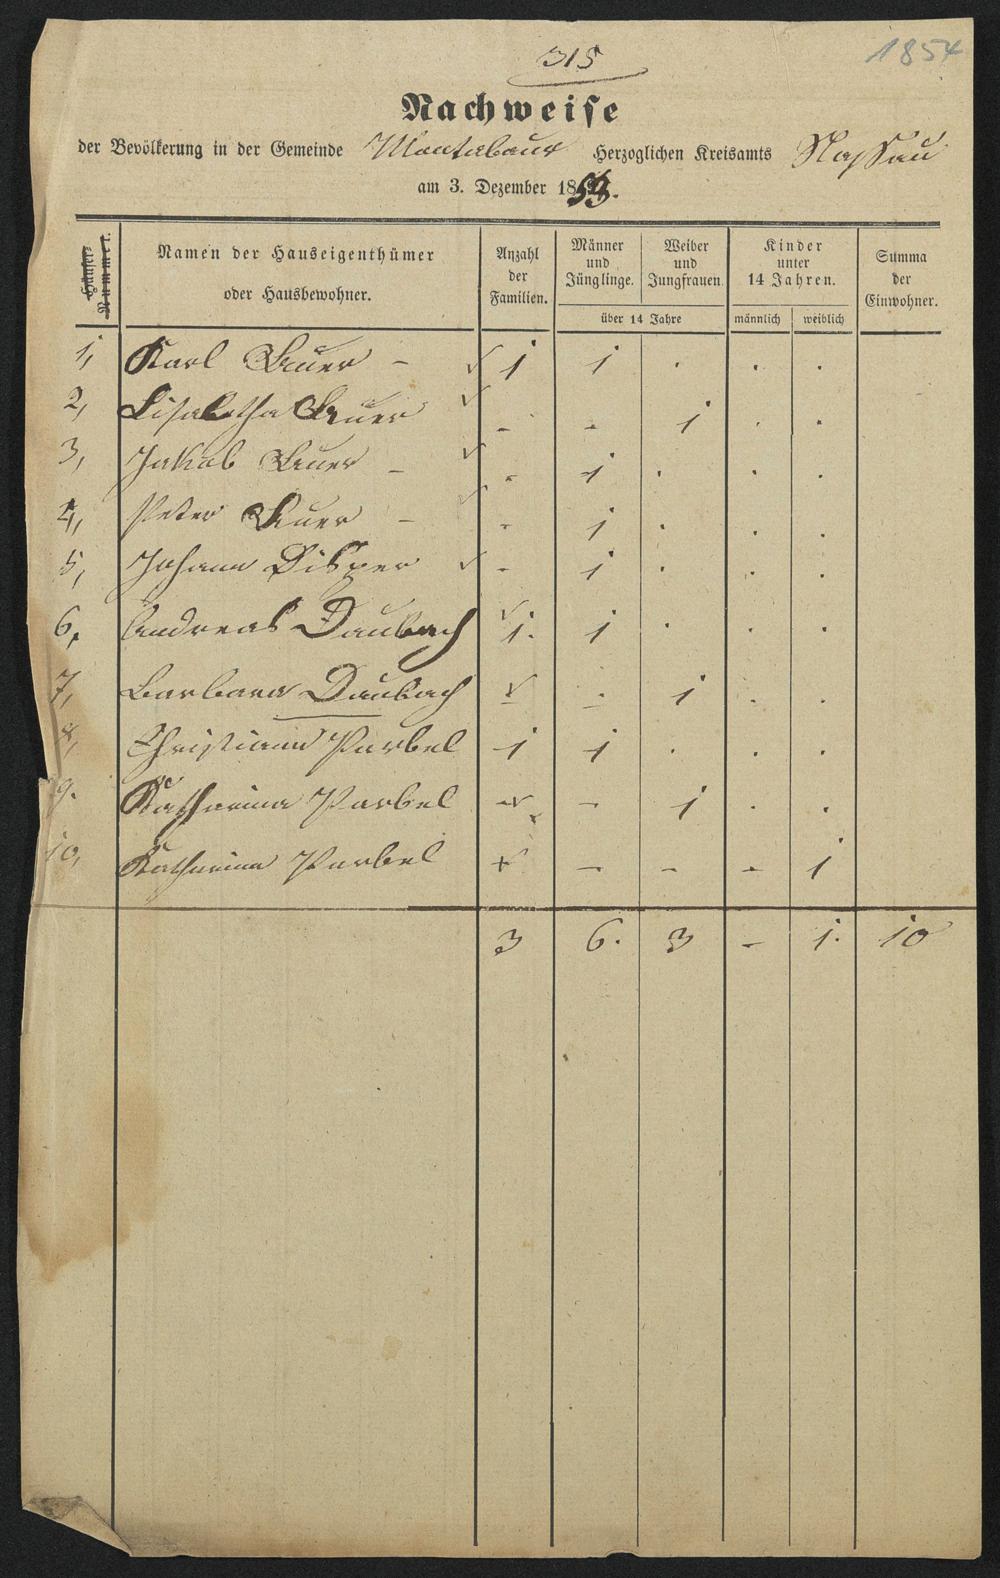 315
1854
Nachweise
der Bevölkerung in der Gemeinde Montabaur Herzoglichen Kreisamts Nassau
am 3. Dezember 1853.
Häuser-Nummer. Namen der Hauseigenthümer oder Hausbewohner. Anzahl der Familien. Männer und Jünglinge. Weiber und Jungfrauen. über 14 Jahre Kinder unter 14 Jahren. männlich weiblich Summa der Einwohner.
1, Karl Auer – 1 1 . . .
2, Lisabetha Auer - - 1 . .
3, Jakob Auer – - 1 . . .
4, Peter Auer – - 1 . . .
5, Johann Disper - 1 . . .
6, Andreas Daubach 1. 1 . . .
7, Barbara Daubach - - 1 . .
8, Christiann Parbel 1 1 . . .
9. Katharina Parbel - - 1 . .
10, Katharina Parbel - - - 1
3 6. 3 - 1. 10